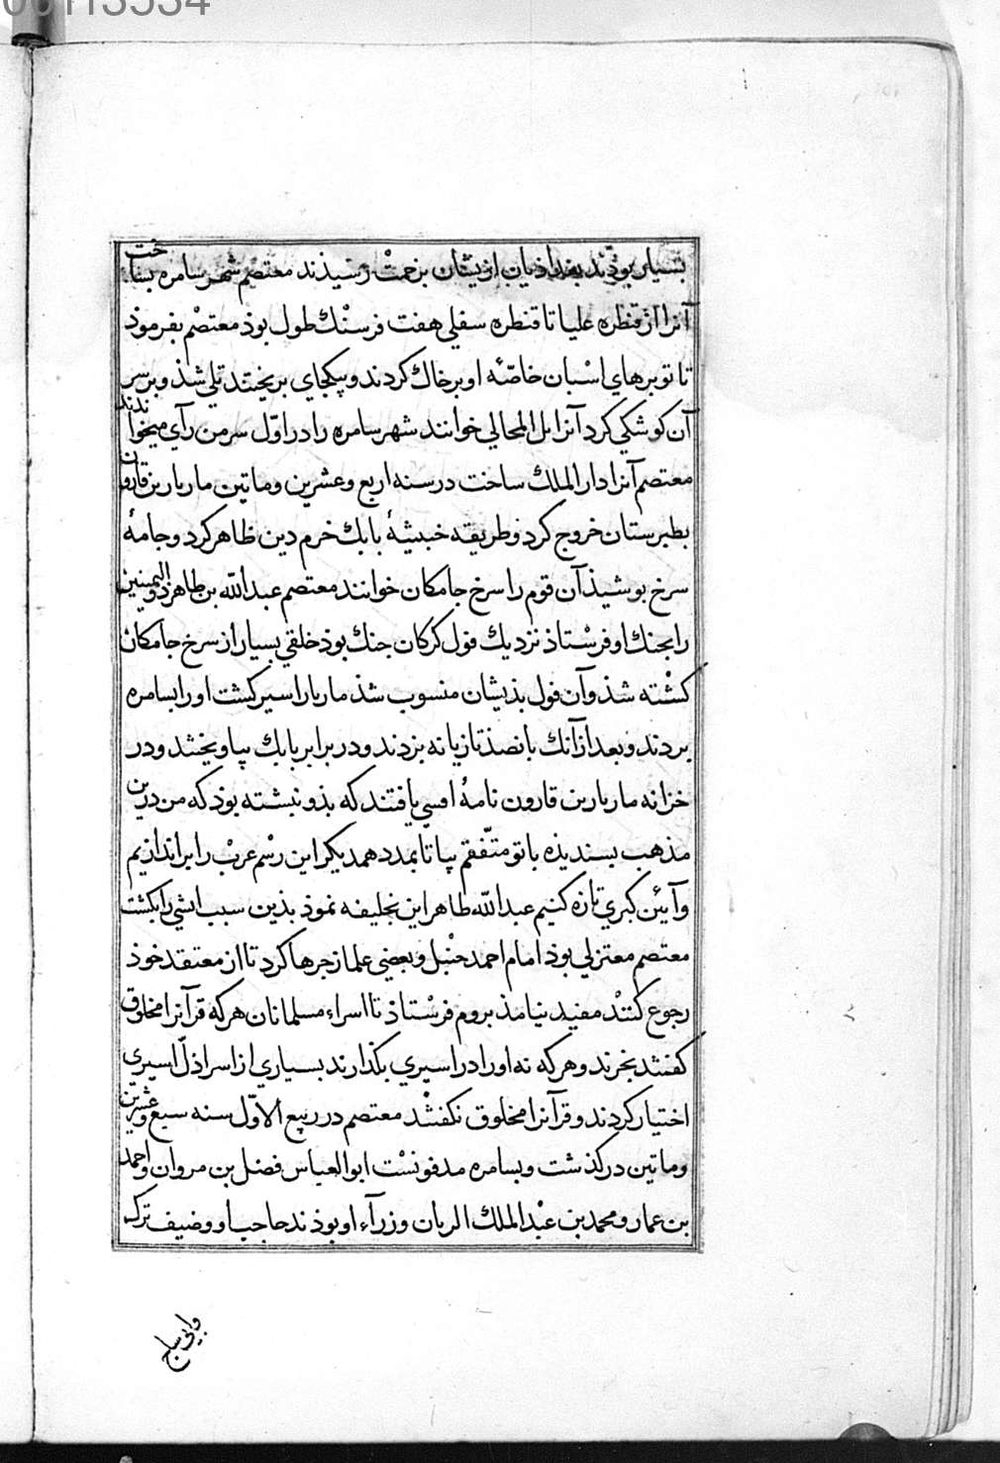 06113534
بسیار بودند بغداذیان ازیشان بزحمت رسیذند معتصم شهر سامره بساخت
آنرا از قنطره علیا تا قنطره سفلی هفت فرسنك طول بوذ معتصم بفرموذ
تا توبرهای اسبان خاصّه او بر خاك کردند و بیکجای بریختند تلی شذ و بر سر
آن کوشکی کرد آنرا تل المخالی خوانند شهر سامره را در اوّل سرمن رآی میخواندند
معتصم آنرا دار الملك ساخت در سنه اربع وعشرین وماتین مازیار بن قارون
بطبرستان خروج کرد وطریقه خبیثهٔ بابك خرم دین ظاهر کرد و جامهٔ
سرخ بوشیذ آن قوم را سرخ جامکان خوانند معتصم عبدالله بن طاهر ذو الیمینین
را بجنك او فرستاذ نزدیك فول کرکان جنك بوذ خلقی بسیار از سرخ جامکان
کشته شذ و آن فول بذیشان منسوب شذ مازیار اسیر کشت او را بسامره
بردند و بعد از آنك بانصذ تازیانه بزدند و در برابر بابك بیاویختند و در
خزانه مازیار بن قارون نامهٔ افسی یافتند که بذو نبشته بوذ که من درین
مذهب بسندیذه با تو متّفقم بیا تا بمدد همدیکر این رسم عرب را براندازیم
و آیین کبری تازه کنیم عبدالله طاهر این بخلیفه نموذ بذین سبب افشی را بکشت
معتصم معتزلی بوذ امام احمد حنبل و بعضی علما زجرها کرد تا از معتقد خوذ
رجوع کنند مفید نیامذ بروم فرستاذ تا اسراء مسلمانان هر که قرآنرا مخلوق
کفتند بخرند و هر که نه او را در اسیری بکذارند بسیاری از اسرا ذلّ اسیری
اختیار کردند و قرآنرا مخلوق نکفتند معتصم در ربیع الاوّل سنه سبع وعشرین
وماتین در کذشت و بسامره مدفونست ابوالعباس فضل بن مروان و احمد
بن عمار و محمد بن عبد الملك الزیان وزرآء او بوذند حاجب او وصیف ترك
وابی ساج